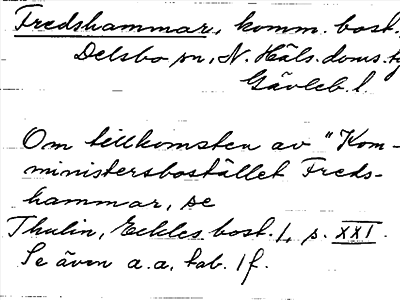 Fredshammar, komm. bost.,
Delsbo sn, N. Häls. doms.
Gävleb. l.
Om tillkomsten av "Kom-
ministersbostället Freds-
hammar, se
Thulin, Eckles. bost. 1, s. XXI.
Se även a.a. tab. 1 f.